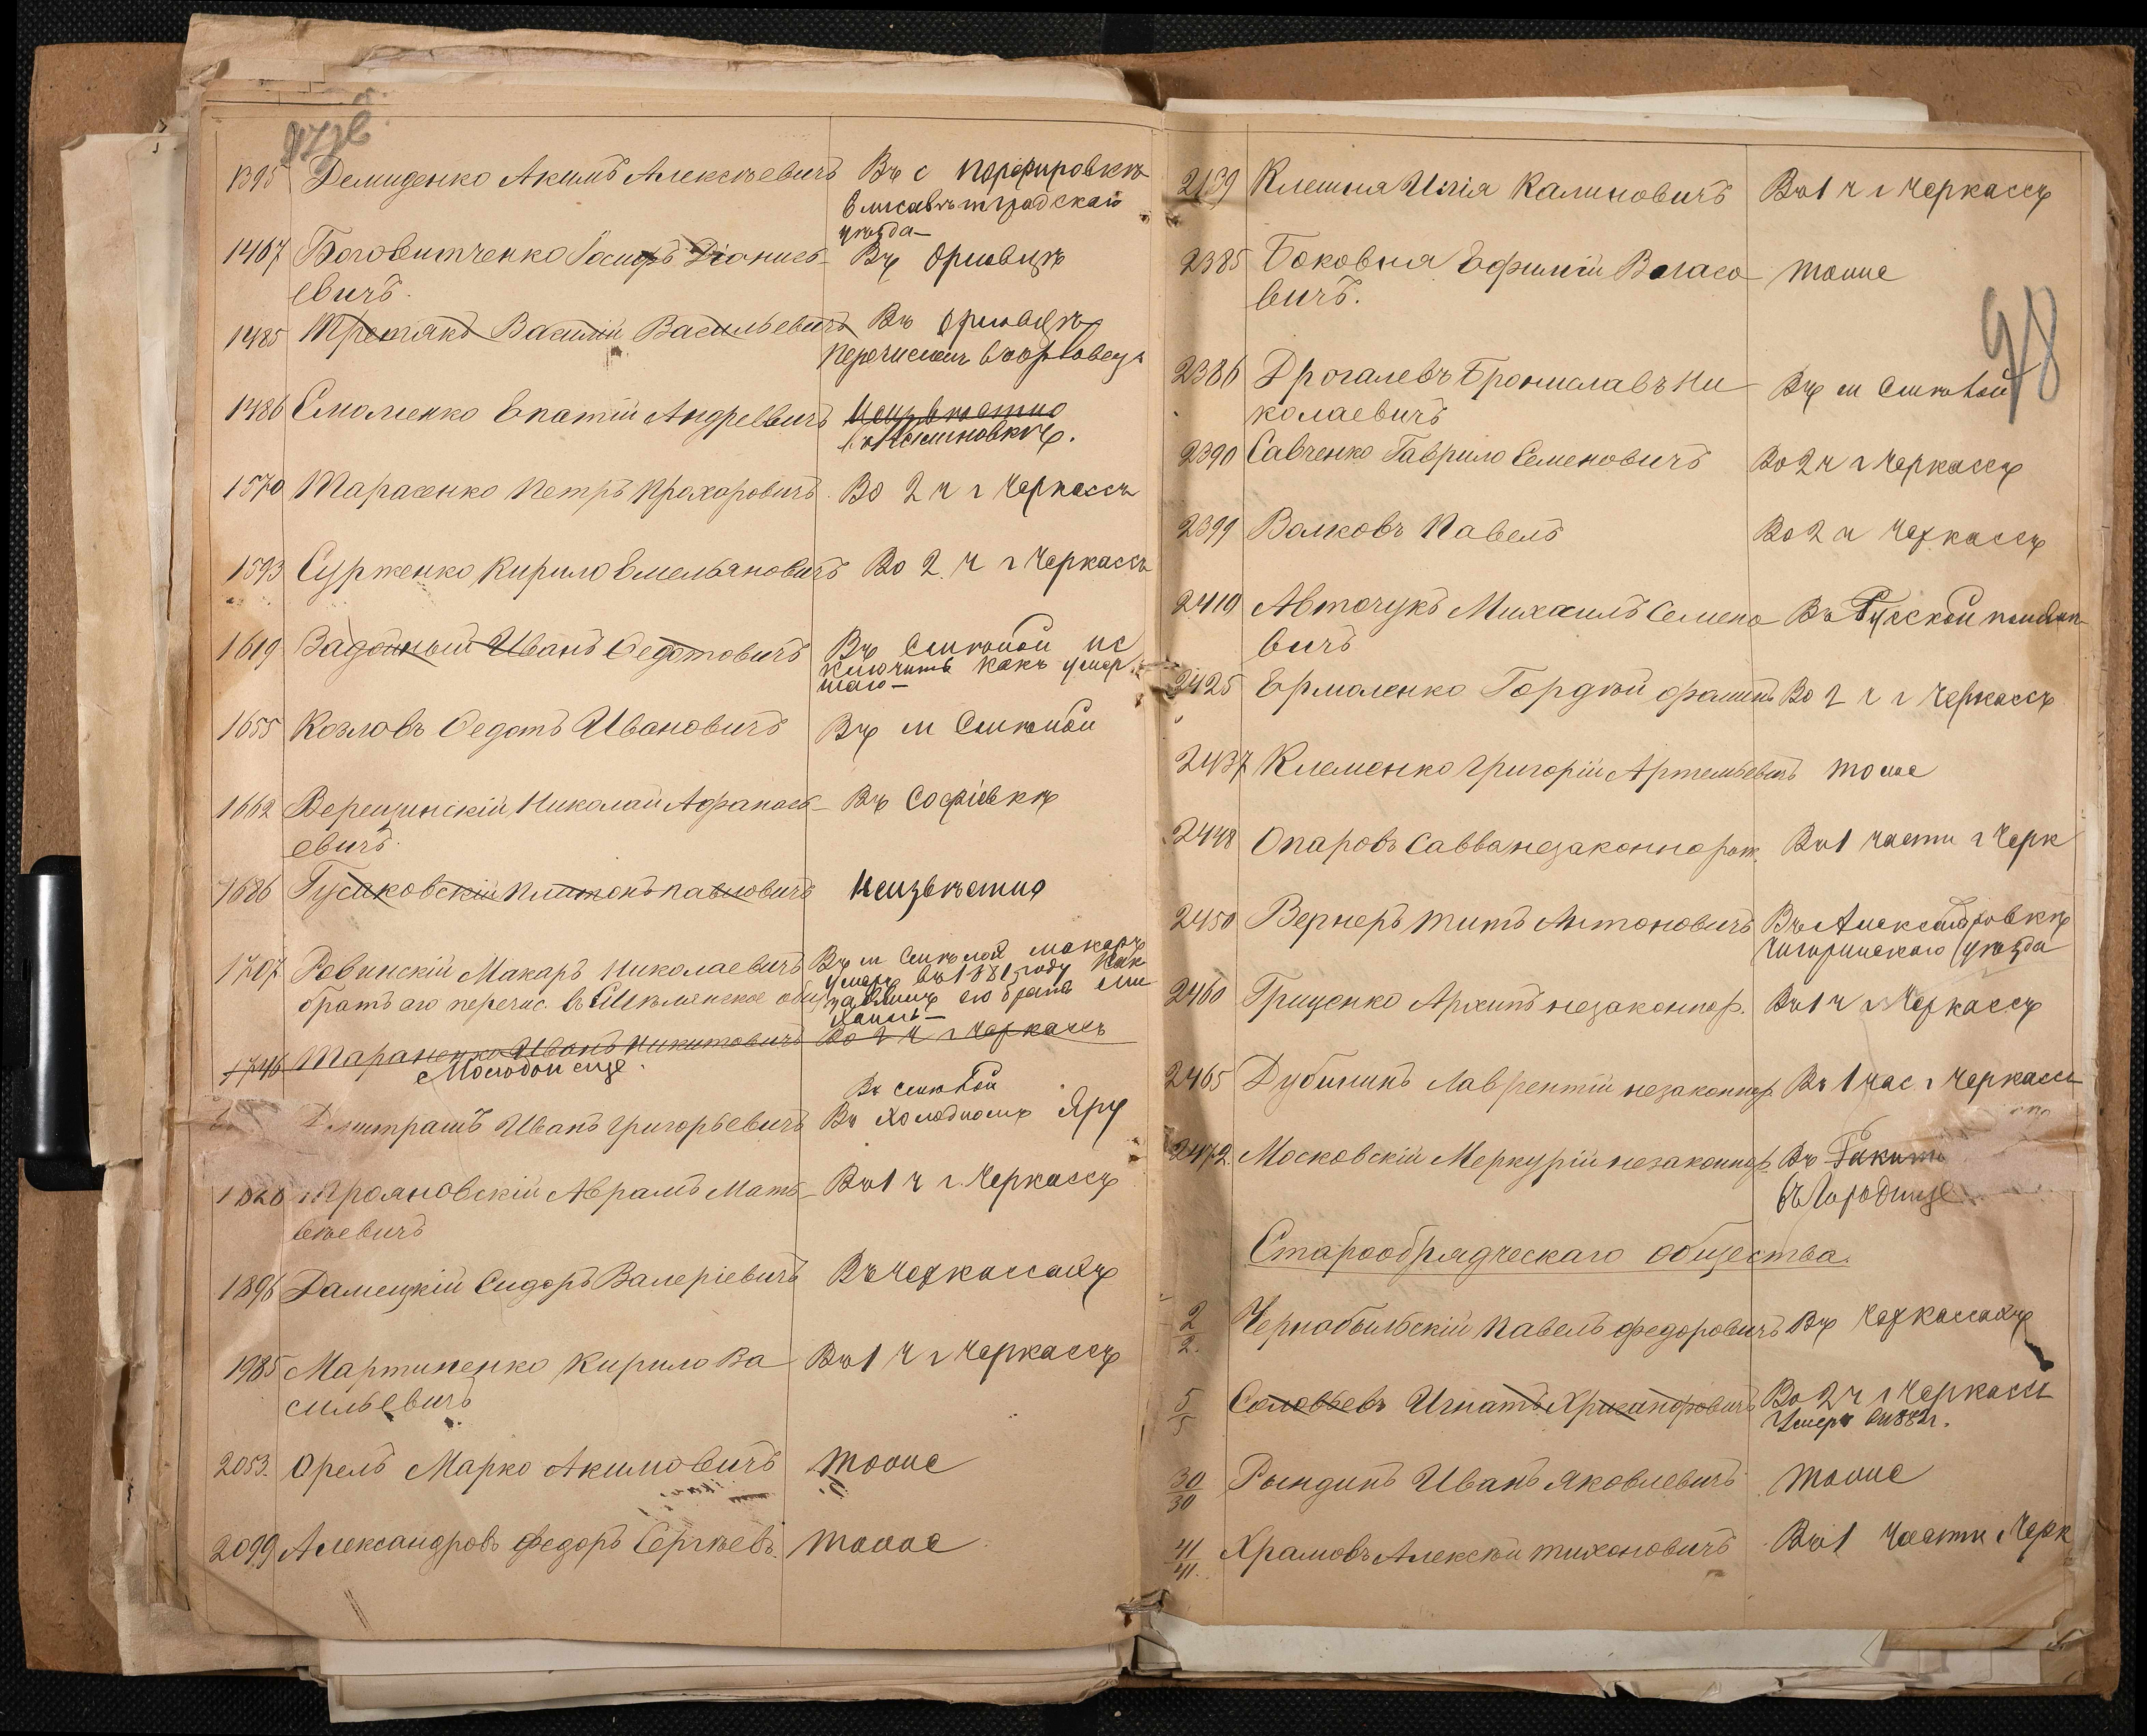 1395 Демиденко Акимъ Алексѣевичъ Въ с Порфировкѣ
Елисаветградскаго
уѣзда
1467 Боговитченко Іосифъ Діонисъ- Въ Орловцѣ
евичъ.
1485 Третякъ Василій Васильевичъ Въ Орловцѣ
перечисленъ въ Орловецъ
1486 Смоленко Епатій Андреевичъ Неизвѣстно
1570 Тарасенко Петръ Прохоровичъ Во 2 ч г Черкассъ
1593 Сурженко Кирило Емельяновичъ Во 2 ч г Черкассъ
1619 Задойный Иванъ Федотовичъ Въ Смѣлой ис
ключить какъ умер
шаго
1655 Козловъ Федотъ Ивановичъ Въ м Смѣлой
1662 Верещинскій Николай Афанась- Въ Софіевкѣ
евичъ.
1686 Гусаковскій Платонъ Павловичъ Неизвѣстно
1707 Ровинскій Макаръ Николаевичъ Въ м Смѣлой Макаръ
умеръ въ 1881 году как
братъ его перечис. въ Смѣлянское общ заявилъ его братъ
1746 Тараненко Иванъ Никитовичъ Во 2 ч г Черкассъ
Молодой еще.
Въ Смѣлой
Дмитрашъ Иванъ Григорьевичъ Въ Холодномъ Яру
1828 Трояновскій Аврамъ Мать- Въ 1 ч г Черкассъ
вѣевичъ
1896 Дамецкій Сидоръ Валеріевичъ Въ Черкассахъ
1985 Мартиненко Кирило Ва Въ 1 ч г Черкассъ
сильевичъ
2053. Орелъ Марко Акимовичъ тоже
2099 Александровъ Федоръ Сергѣев. тоже
2139 Клешня Илія Калиновичъ Въ 1 ч г Черкассъ
2385 Боковня Ефимій Власо тоже
вичъ.
98
2386 Дрогалевъ Брониславъ Ни Въ м Смѣлой
колаевичъ
2390 Савченко Гаврило Семеновичъ Во 2 ч г Черкассъ
2399 Волковъ Павелъ Во 2 ч Черкассъ
2410 Авточукъ Михаилъ Семено Въ Русской
вичъ
2425 Ермоленко Гордѣй Во 2 ч г Черкассъ
2437 Клеменко Григорій Артемьевичъ тоже
2448 Опаровъ Савва незаконнорож. Въ 1 части г Черк
2450 Вернеръ Титъ Антоновичъ Въ Александровкѣ
Чигиринскаго уѣзда
2460 Гриценко Архипъ незаконнор. Въ 1 ч г Черкассъ
2465 Дубининъ Лаврентій незаконнор. Въ 1 час г Черкассъ
2472. Московскій Меркурій незаконнор. Въ
въ Городище
Старообрядческаго общества.
2/2. Чернобыльскій Павелъ Федоровичъ Въ Черкассахъ
5/5 Соловьевъ Игнатъ Хрисанфовичъ Во 2 ч г Черкассъ
Умеръ въ 1882 г.
30/30 Рындинъ Иванъ Яковлевичъ тоже
41/41. Храмовъ Алексѣй Тихоновичъ Въ 1 части г Черк